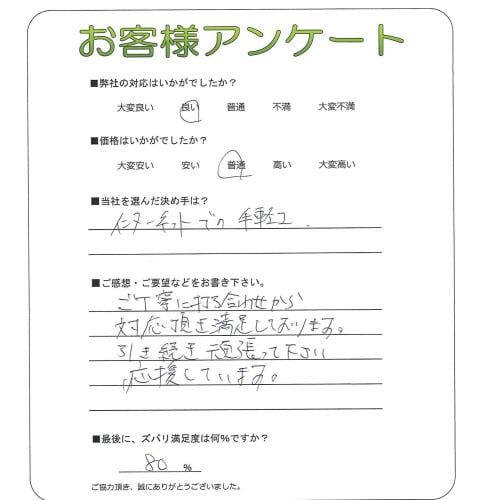 お客様アンケート
■弊社の対応はいかがでしたか？
大変良い 良い 普通 不満 大変不満
■価格はいかがでしたか？
大変安い 安い 普通 高い 大変高い
■当社を選んだ決め手は？
インターネットでの手軽エ.
■ご感想・ご要望などをお書き下さい。
ご丁寧に打ち合わせから
対応頂き満足しております。
引き続き頑張って下さい
応援しています。
■最後に、ズバリ満足度は何%ですか？
80 %
ご協力頂き、誠にありがとうございました。